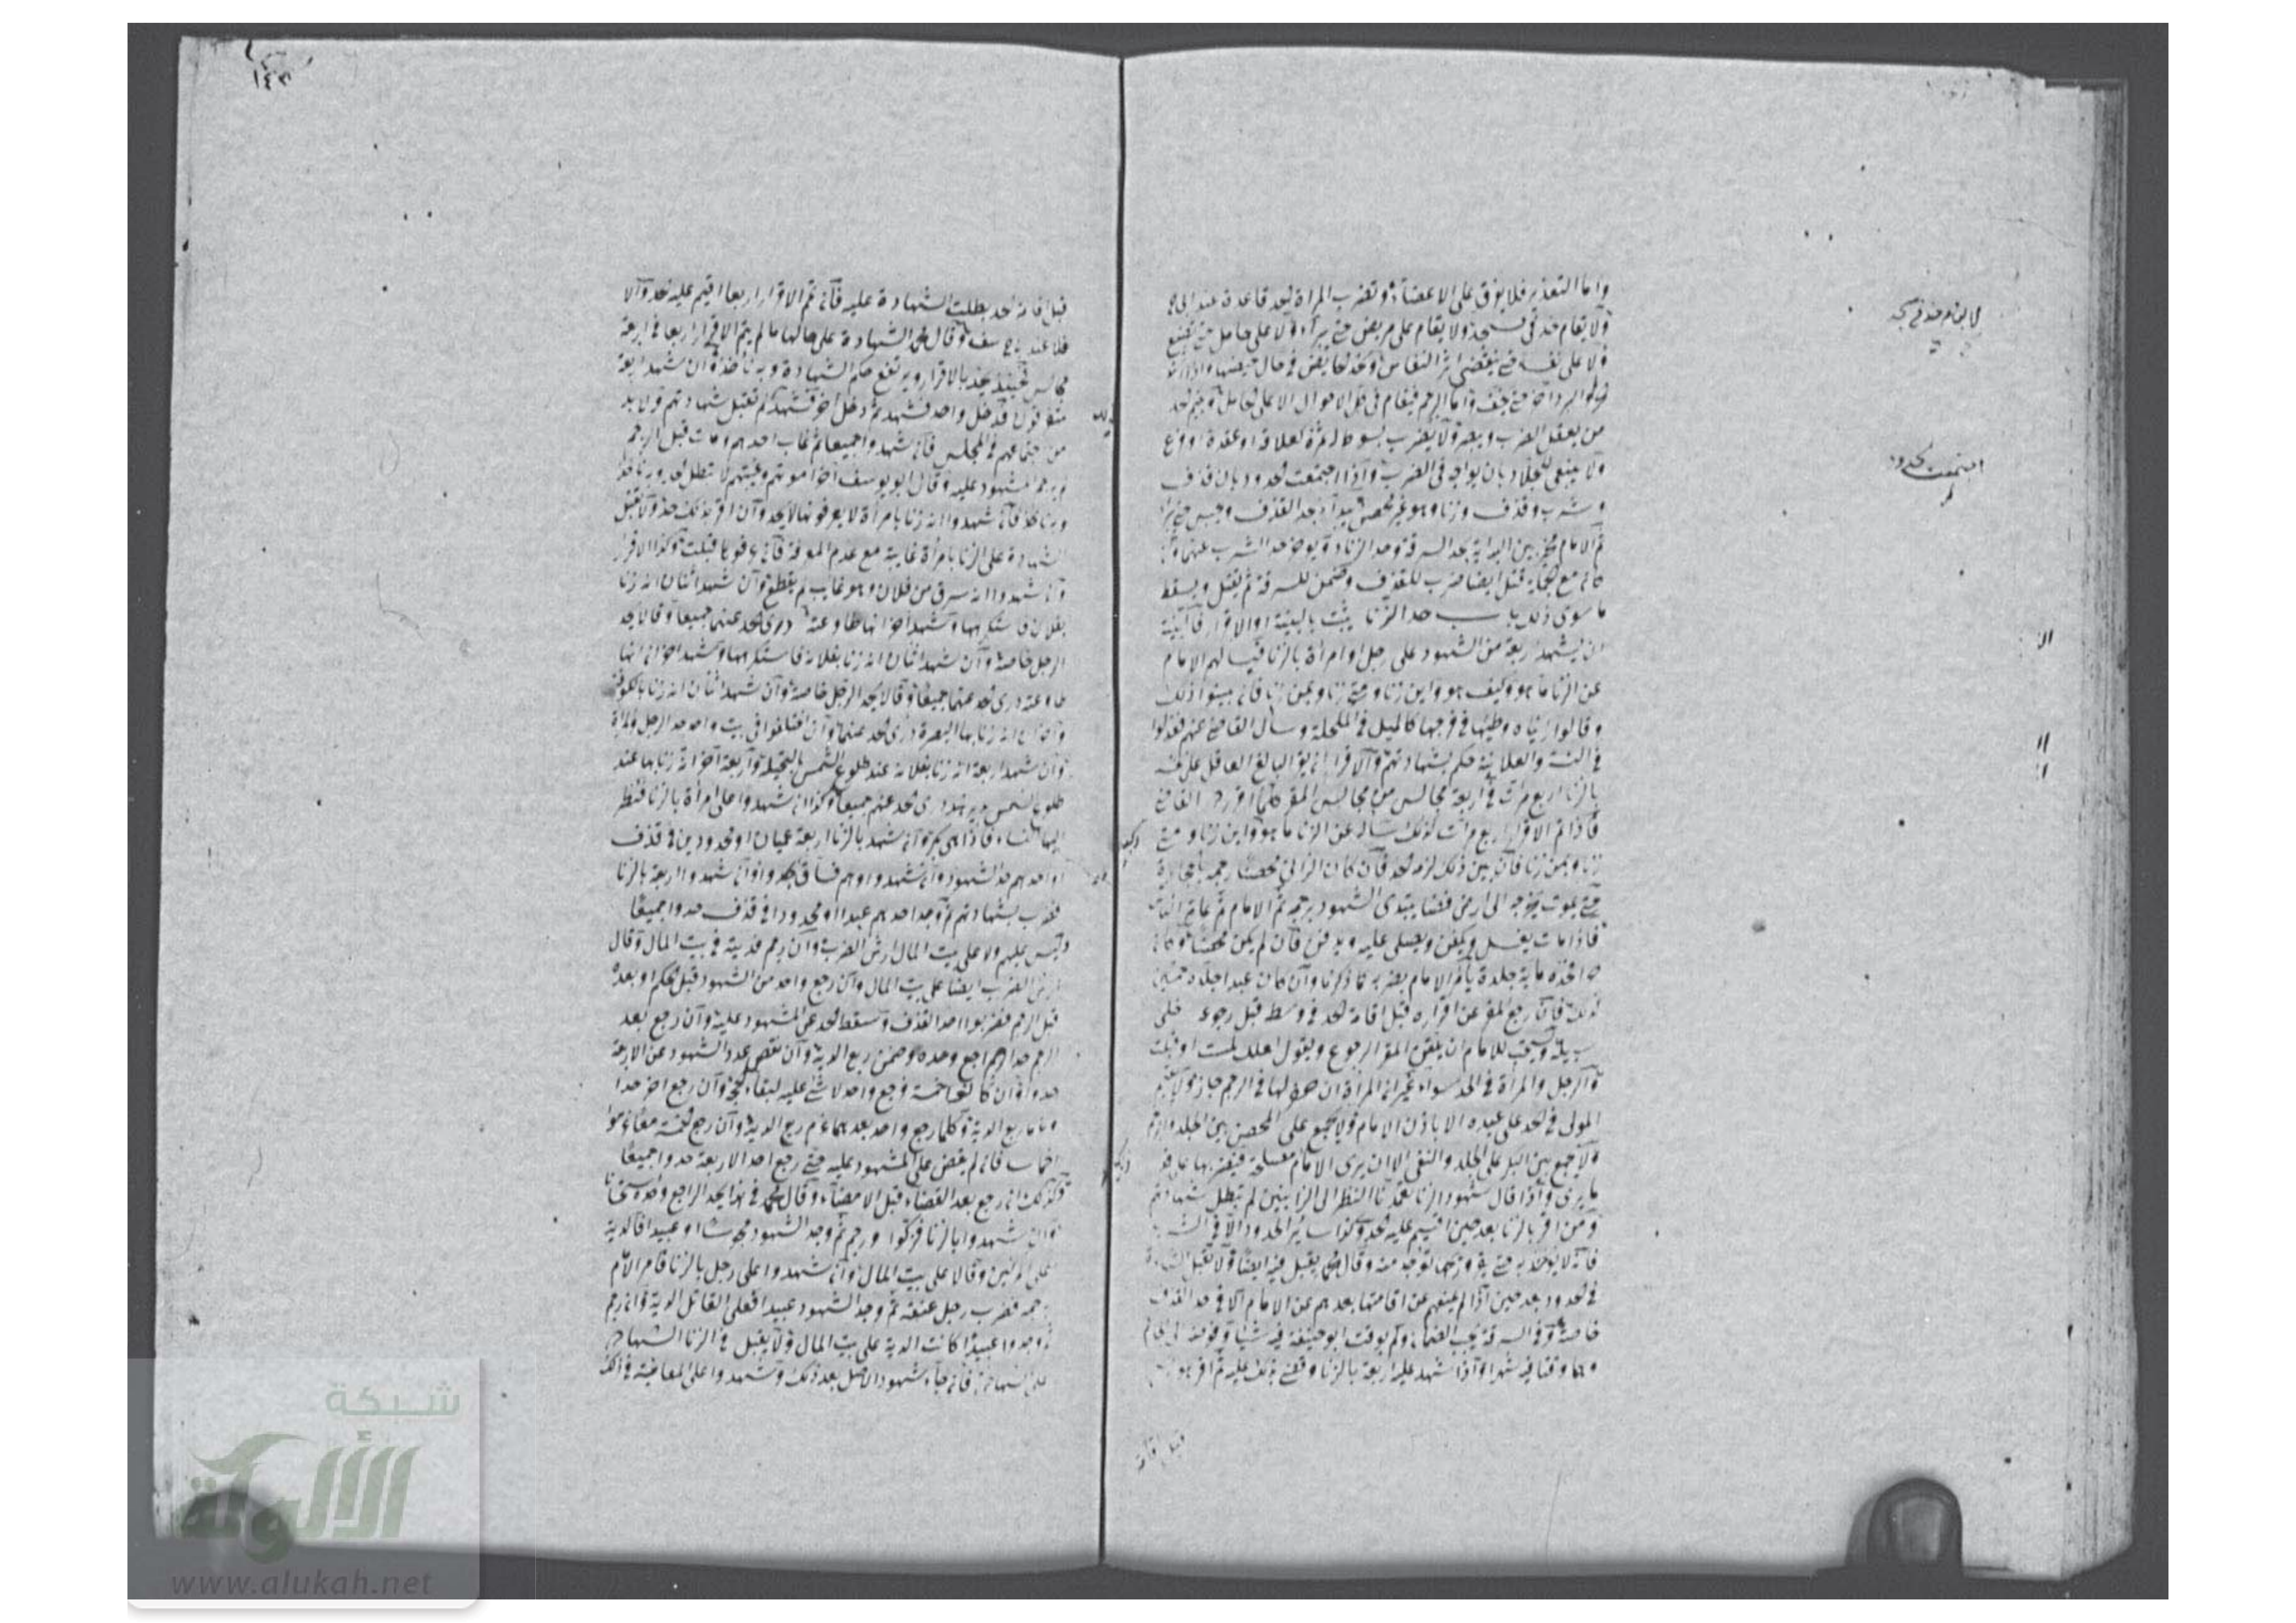 واما التعذير فلا يفرق على الاعضاء وتضرب المراة لحد قاعدة عند ابي
ولا يقام حد في مسجد ولا يقام على مريض حتى يبرأ ولا على حامل حتى تضع
ولا على نفساء حتى ينقضي النفاس
واما الرجم فيقام في كل الاحوال الا على الحامل
من يعقل الضرب ولا يضرب بسوط له ثمرة لعلاقة او عقدة
ولا ينبغي للجلاد بان يوالي في الضرب واذا اجتمعت الحدود بان قذف
وشرب وقذف وزنا وهو غير محصن يبدأ بحد القذف وحبس حتى يبرأ
ثم الامام مخير بين البداية بحد السرقة وحد الزنا ويؤخر حد الشرب عنهما
قتل ايضا ضرب للقذف وضمن للسرقة ثم يقتل ويسقط
ما سوى ذلك باب حد الزنا يثبت بالبينة او الاقرار فالبينة
ان يشهد اربعة من الشهود على رجل او امرأة بالزنا فيسالهم الامام
عن الزنا ما هو وكيف هو واين زنا ومتى زنا وبمن زنا فان بينوا ذلك
وقالوا رايناه وطيها في فرجها كالميل في المكحلة وسأل القاضي عنهم فعدلوا
في السر والعلانية حكم بشهادتهم والاقرار ان يقر البالغ العاقل على نفسه
بالزنا اربع مرات في اربعة مجالس من مجالس المقر كلما اقر رده القاضي
فاذا تم الاقرار اربع مرات كذلك سأله عن الزنا ما هو واين زنا ومتى
زنا وبمن زنا فان بين ذلك لزمه الحد فان كان الزاني محصنا رجمه بالحجارة
حتى يموت يخرجه الى ارض فضا يبتدي الشهود برجمه ثم الامام ثم عامة الناس
فاذا مات يغسل ويكفن ويصلى عليه ويدفن فان لم يكن محصنا وكان
حرا فحده ماية جلدة يأمر الامام بضربه كما ذكرنا وان كان عبدا جلده خمسين
كذلك فان رجع المقر عن اقراره قبل اقامة الحد في وسطه قبل رجوعه خلى
سبيله ويستحب للامام ان يلقن المقر الرجوع ويقول لعلك لمست او قبلت
والرجل والمرأة في الحد سواء غير ان المرأة ان حفر لها في الرجم جاز ولا يقيم
المولى في الحد على عبده الا باذن الامام ولا يجمع على المحصن بين الجلد والرجم
ولا يجمع بين البكر على الجلد والنفي الا ان يرى الامام مصلحة فيغربها على قدر
ما يرى واذا قال شهود الزنا تعمدنا النظر الى الزانيين لم تبطل شهادتهم
ومن اقر بالزنا بعد حين اقيم عليه الحد وكذا ساير الحدود الا في الشرب
فانه لا يؤخذ به وريحها توجد منه وقال محمد يقبل فيه ايضا ولا تقبل الشهادة
في الحدود بعد حين اذا لم يمنعهم عن اقامتها بعدهم عن الامام الا في حد القذف
خاصة وفي السرقة يجب الضمان ولم يوقت ابو حنيفة فيه شيئا وفوضه الى الامام
وهما وقتا فيه شهرا واذا شهد عليه اربعة بالزنا وقضي بذلك عليه ثم اقر هو
قبل اقامة
لا يقام حد في مسجد
اجتمعت الحدود
١٤٣
قبل اقامة الحد بطلت الشهادة عليه فان تم الاقرار اربعا اقيم عليه الحد والا
فلا عند ابي يوسف وقال محمد الشهادة على حالها ما لم يتم الاقرار اربعا في اربعة
مجالس فحينئذ يحد بالاقرار ويرتفع حكم الشهادة وبه ناخذ وان شهد اربعة
متفرقون فدخل واحد فشهد ثم دخل اخر فشهد لم تقبل شهادتهم ولا بد
من اجتماعهم في المجلس فان شهدوا جميعا ثم غاب احدهم او مات قبل الرجم
لم يرجم المشهود عليه وقال ابو يوسف اخرا موتهم وغيبتهم لا تبطل الحد وبه ناخذ
فان شهدوا انه زنا بامرأة لا يعرفونها لا يحد وان اقر بذلك حد ولا تقبل
الشهادة على الزنا بامرأة غايبة مع عدم المعرفة فان عرفوها قبلت وكذا الاقرار
وان شهدوا انه سرق من فلان وهو غايب لم يقطع وان شهد اثنان انه زنا
بفلانة فاستكرهها وشهد اخر انها طاوعته درئ الحد عنهما جميعا وقالا يحد
الرجل خاصة وان شهد اثنان انه زنا بفلانة فاستكرهها وشهد اخران انها
طاوعته درئ الحد عنهما جميعا وقالا يحد الرجل خاصة وان شهد اثنان انه زنا بالكوفة
واخران انه زنا بها بالبصرة درئ الحد عنهما وان اختلفوا في بيت واحد حد الرجل والمرأة
وان شهد اربعة انه زنا بفلانة عند طلوع الشمس بالنخيلة واربعة اخر انه زنا بها عند
طلوع الشمس بدير هند درئ الحد عنهم جميعا وكذا ان شهدوا على امرأة بالزنا فنظر
اليها النساء فاذا هي بكر وان شهد بالزنا اربعة عميان او محدودين في قذف
او احدهم حد الشهود وان شهدوا وهم فساق لم يحدوا وان شهدوا اربعة بالزنا
فضرب بشهادتهم ثم وجد احدهم عبدا او محدودا في قذف حدوا جميعا
وليس عليهم ولا على بيت المال ارش الضرب وان رجم فديته في بيت المال وقالا
ارش الضرب ايضا على بيت المال وان رجع واحد من الشهود قبل الحكم او بعده
قبل الرجم ضربوا احد القذف وسقط الحد عن المشهود عليه وان رجع بعد
الرجم حد الراجع وحده وضمن ربع الدية وان نقص عدد الشهود عن الاربعة
حدوا وان كانوا خمسة فرجع واحد لا شئ عليه لبقاء الحجة وان رجع اخر حدا
وغرما ربع الدية وكلما رجع واحد بعدهما غرم ربع الدية وان رجع الخمسة معا غرموا
اخماسا فان لم يمض على المشهود عليه حتى رجع احد الاربعة حدوا جميعا
وكذلك ان رجع بعد القضاء قبل الامضاء وقال محمد في هذا يحد الراجع وحده استحسانا
وان شهدوا بالزنا فزكوا ورجم ثم وجد الشهود مجوسا او عبيدا فالدية
على المزكين وقالا على بيت المال وان شهدوا على رجل بالزنا فامر الامام
برجمه فضرب رجل عنقه ثم وجد الشهود عبيدا فعلى القاتل الدية وان رجم
فوجدوا عبيدا كانت الدية على بيت المال ولا يقبل في الزنا الشهادة
على الشهادة فان جاء شهود الاصل بعد ذلك وشهدوا على المعاينة في ذلك
شبكة
الألوكة
www.alukah.net